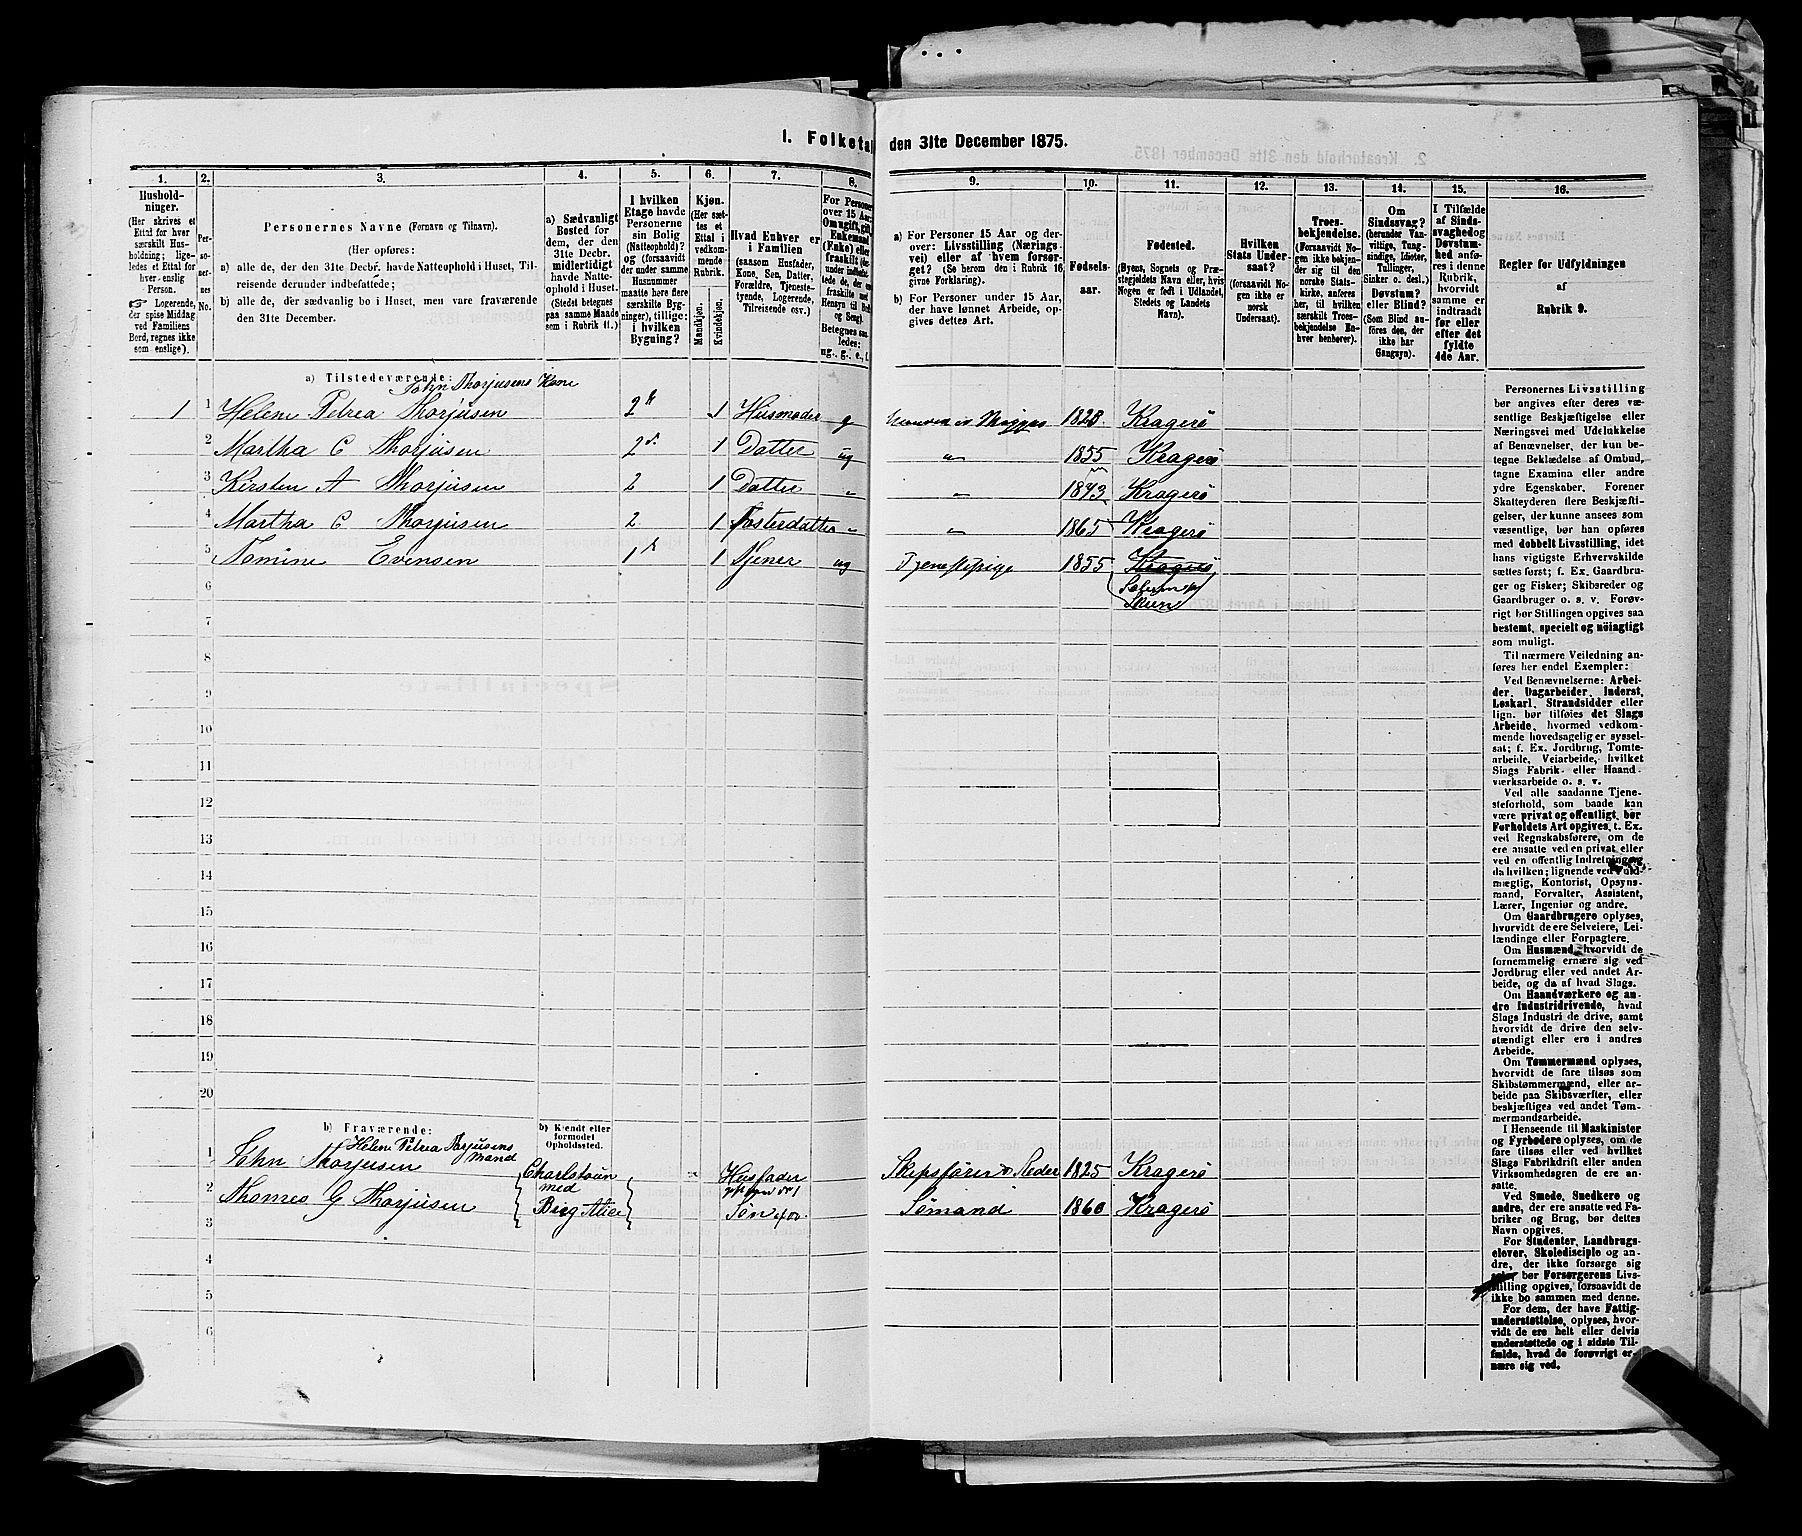 1. Folketal den 31te December 1875.
1.
2.
3.
4.
5.
6.
7.
8.
9.
10.
11.
12.
13.
14.
15.
16.
Hushold-
ninger.
(Her skrives et
Ettal for hver
særskilt Hus-
holdning; lige-
ledes et Ettal for
hver enslig
Person.
☞ Logerende,
der spise Middag
ved Familiens
Bord, regnes ikke
som enslige).
Per-
so-
ner-
nes
No.
Personernes Navne (Fornavn og Tilnavn).
(Her opføres:
a) alle de, der den 31te Decbr. havde Natteophold i Huset, Til-
reisende derunder indbefattede;
b) alle de, der sædvanlig bo i Huset, men vare fraværende
den 31te December.
a) Sædvanligt
Bosted for
dem, der den
31te Decbr.
midlertidigt
havde Natte-
ophold i Huset.
(Stedet betegnes
paa samme Maade
som i Rubrik 11.)
I hvilken
Etage havde
Personerne
sin Bolig
(Natteophold)?
og (forsaavidt
der under samme
Husnummer
maatte høre flere
særskilte Byg-
ninger), tillige:
i hvilken
Bygning?
Kjøn.
(Her sæt-
tes et
Ettal i
vedkom-
mende
Rubrik.
Mandkjøn.
Kvindekjøn.
Hvad Enhver er
i Familien
(saasom Husfader,
Kone, Søn, Datter,
Forældre, Tjeneste-
tyende, Logerende,
Tilreisende osv.)
For Personer
over 15 Aar:
Om ugift, gift,
Enkemand
(Enke) eller
fraskilt
Betegnes saa-
ledes:
ug., g., e., f.
a) For Personer 15 Aar og der-
over: Livsstilling (Nærings-
vei) eller af hvem forsør-
get? (Se herom den i Rubrik 16
givne Forklaring).
b) For Personer under 15 Aar,
der have lønnet Arbeide, op-
gives dettes Art.
Fødsels-
aar.
Fødested.
(Byens, Sognets og Præ-
stegjeldets Navn eller, hvis
Nogen er født i Udlandet,
Stedets og Landets
Navn).
Hvilken
Stats Under-
saat?
(forsaavidt No-
gen ikke er
norsk
Undersaat).
Troes-
bekjendelse.
(Forsaavidt No-
gen ikke bekjen-
der sig til den
norske Stats-
kirke, anføres
her, til hvilken
særskilt Troes-
bekjendelse En-
hver henhører).
Om
Sindssvag?
(herunder Van-
vittige, Tung-
sindige, Idioter,
Tullinger,
Sinker o. desl.)
Døvstum?
eller Blind?
(Som Blind an-
føres den, der
ikke har
Gangsyn).
I Tilfælde
af Sinds-
svaghed og
Døvstum-
hed anfø-
res i denne
Rubrik,
hvorvidt
samme er
indtraadt
før eller
efter det
fyldte
4de Aar.
Regler for Udfyldningen
af
Rubrik 9.
a) Tilstedeværende:
John Thorjusens Kone
1 1 Helene Petrea Thorjusen 2 1 Husmoder g 1828 Kragerø
2 Martha C Thorjusen 2 1 Datter ug " 1855 Kragerø
3 Kirsten A Thorjusen 2 1 Datter " " 1873 Kragerø
4 Martha C Thorjusen 2 1 Fosterdatter " " 1865 Kragerø
5 Tomine Evensen 1 1 Tjener ug Tjenestepige 1855 Kragerø
Skien
6
7
8
9
10
11
12
13
14
15
16
17
18
19
20
b) Fraværende:
b) Kjendt eller
formodet
Opholdssted.
Helene Petrea Thorjusens
Mand
1 John Thorjusen Charlstoun Husfader Skipsfører & Reder 1825 Kragerø
med
2 Thomes G Thorjusen Brig Alice Søn Sømand 1860 Kragerø
3
4
5
6
Personernes Livsstilling
bør angives efter deres væ-
sentlige Beskjæftigelse eller
Næringsvei med Udelukkelse
af Benævnelser, der kun be-
tegne Beklædelse af Ombud,
tagne Examina eller andre
ydre Egenskaber. Forener
Skatteyderen flere Beskjæfti-
gelser, der kunne ansees som
væsentlige, bør han opføres
med dobbelt Livsstilling, idet
hans vigtigste Erhvervskilde
sættes først; f. Ex. Gaardbru-
ger og Fisker; Skibsreder og
Gaardbruger o. s. v. Forøv-
rigt bør Stillingen opgives saa
bestemt, specielt og nøiagtigt
som muligt.
Til nærmere Veiledning an-
føres her endel Exempler:
Ved Benævnelserne: Arbei-
der, Dagarbeider, Inderst,
Løskarl, Strandsidder eller
lign. bør tilføies det Slags
Arbeide, hvormed vedkom-
mende hovedsagelig er syssel-
sat; f. Ex. Jordbrug, Tomte-
arbeide, Veiarbeide, hvilket
Slags Fabrik- eller Haand-
værksarbeide o. s. v.
Ved alle saadanne Tjene-
steforhold, som baade kan
være privat og offentligt, bør
Forholdets Art opgives, t. Ex.
ved Regnskabsførere, om de
ere ansatte ved en privat eller
ved en offentlig Indretning og
da hvilken; lignende ved Fuld-
mægtig, Kontorist, Opsyns-
mand, Forvalter, Assistent,
Lærer, Ingeniør og andre.
Om Gaardbrugere oplyses,
hvorvidt de ere Selveiere, Lei-
lændinge eller Forpagtere.
Om Husmænd, hvorvidt de
fornemmelig ernære sig ved
Jordbrug eller ved andet Ar-
beide, og da af hvad Slags.
Om Haandværkere og an-
dre Industridrivende, hvad
Slags Industri de drive, samt
hvorvidt de drive den selv-
stændigt eller ere i andres
Arbeide.
Om Tømmermænd oplyses,
hvorvidt de fare tilsøs som
Skibstømmermænd, eller ar-
beide paa Skibsværfter, eller
beskjæftiges ved andet Tøm-
mermandsarbeide.
I Henseende til Maskinister
og Fyrbødere oplyses, om de
fare tilsøs eller ved hvilket
Slags Fabrikdrift eller anden
Virksomhedsgren de ere an-
satte.
Ved Smede, Snedkere og
andre, der ere ansatte ved Fa-
briker og Brug, bør dettes
Navn opgives.
For Studenter, Landbrugs-
elever, Skoledisciple og an-
dre, der ikke forsørge sig
selv, bør Forsørgerens Livs-
stilling opgives, forsaavidt de
ikke bo sammen med denne.
For dem, der have Fattig-
understøttelse, oplyses, hvor-
vidt de ere helt eller delvis
understøttede og i sidste Til-
fælde, hvad de forøvrigt er-
nære sig ved.